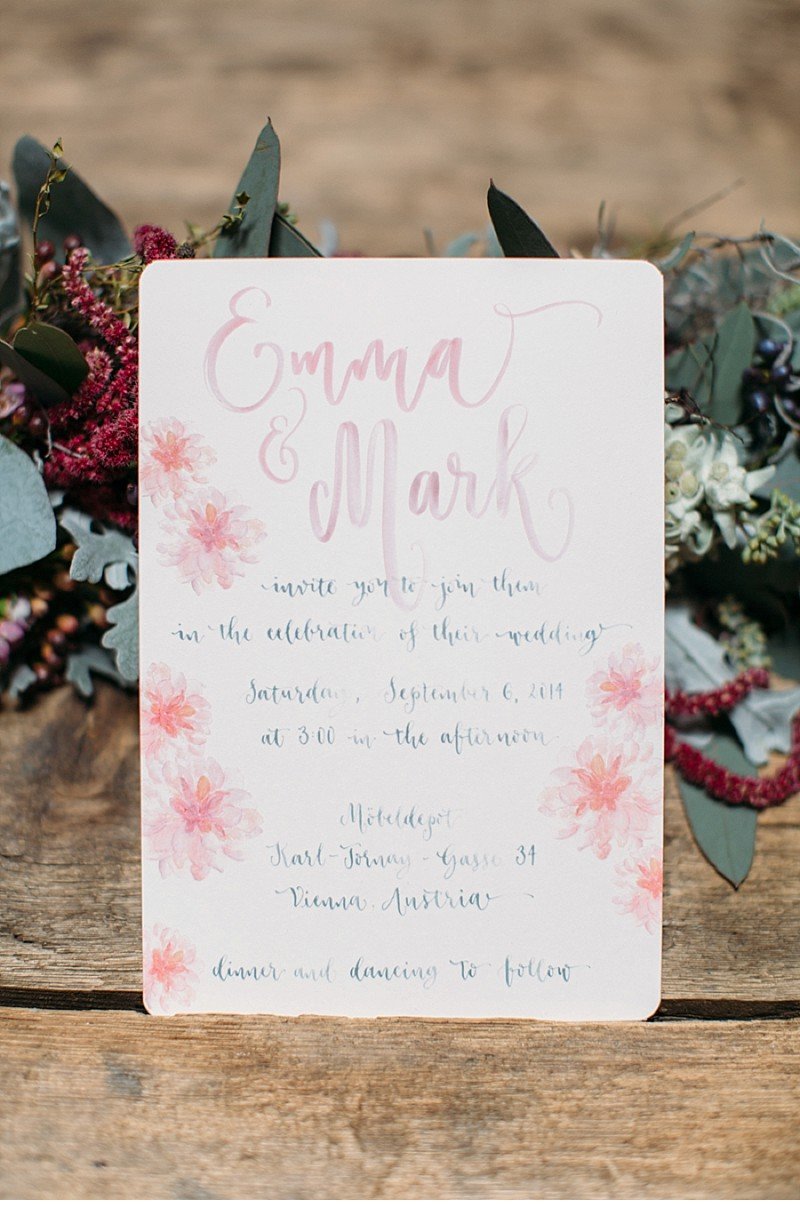 Emma
& Mark
invite you to join them
in the celebration of their wedding
Saturday, September 6, 2014
at 3:00 in the afternoon
Möbeldepot
Karl-Tornay-Gasse 34
Vienna, Austria
dinner and dancing to follow